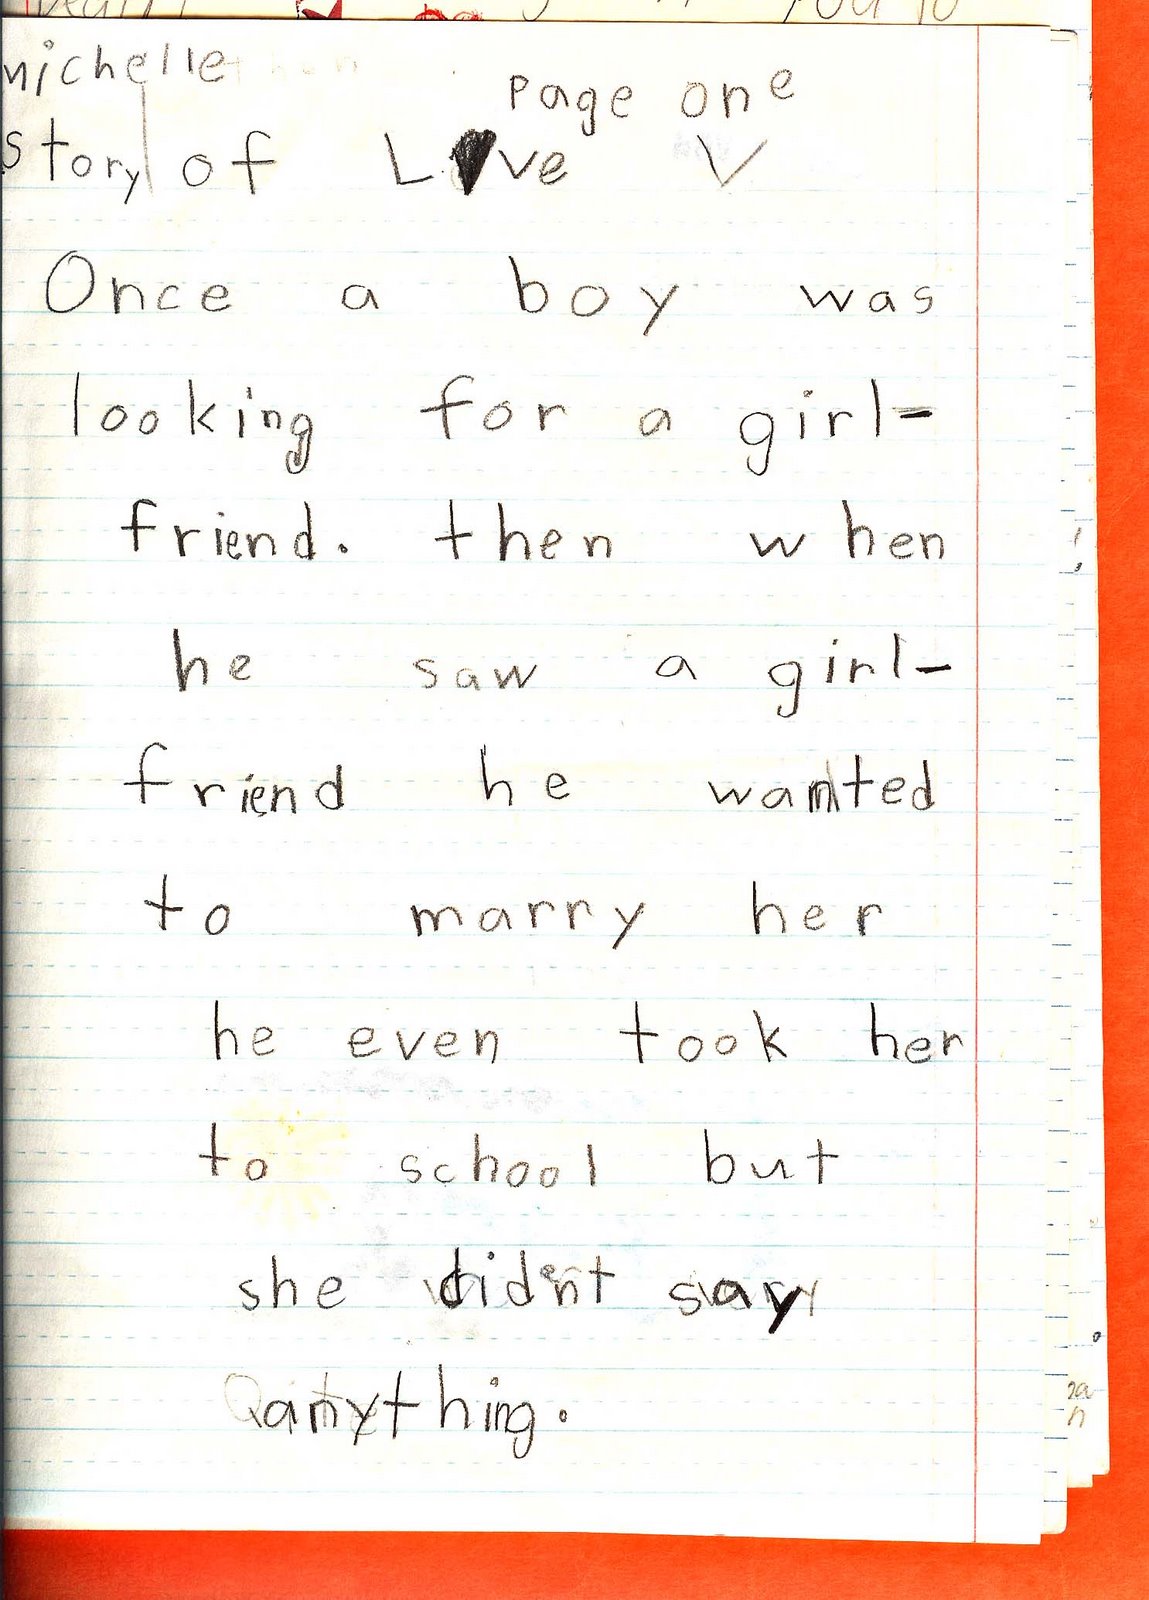 michelle
page one
story of L♥ve V
Once a boy was
looking for a girl-
friend. then when
he saw a girl-
friend he wanted
to marry her
he even took her
to school but
she didnt say
anything.